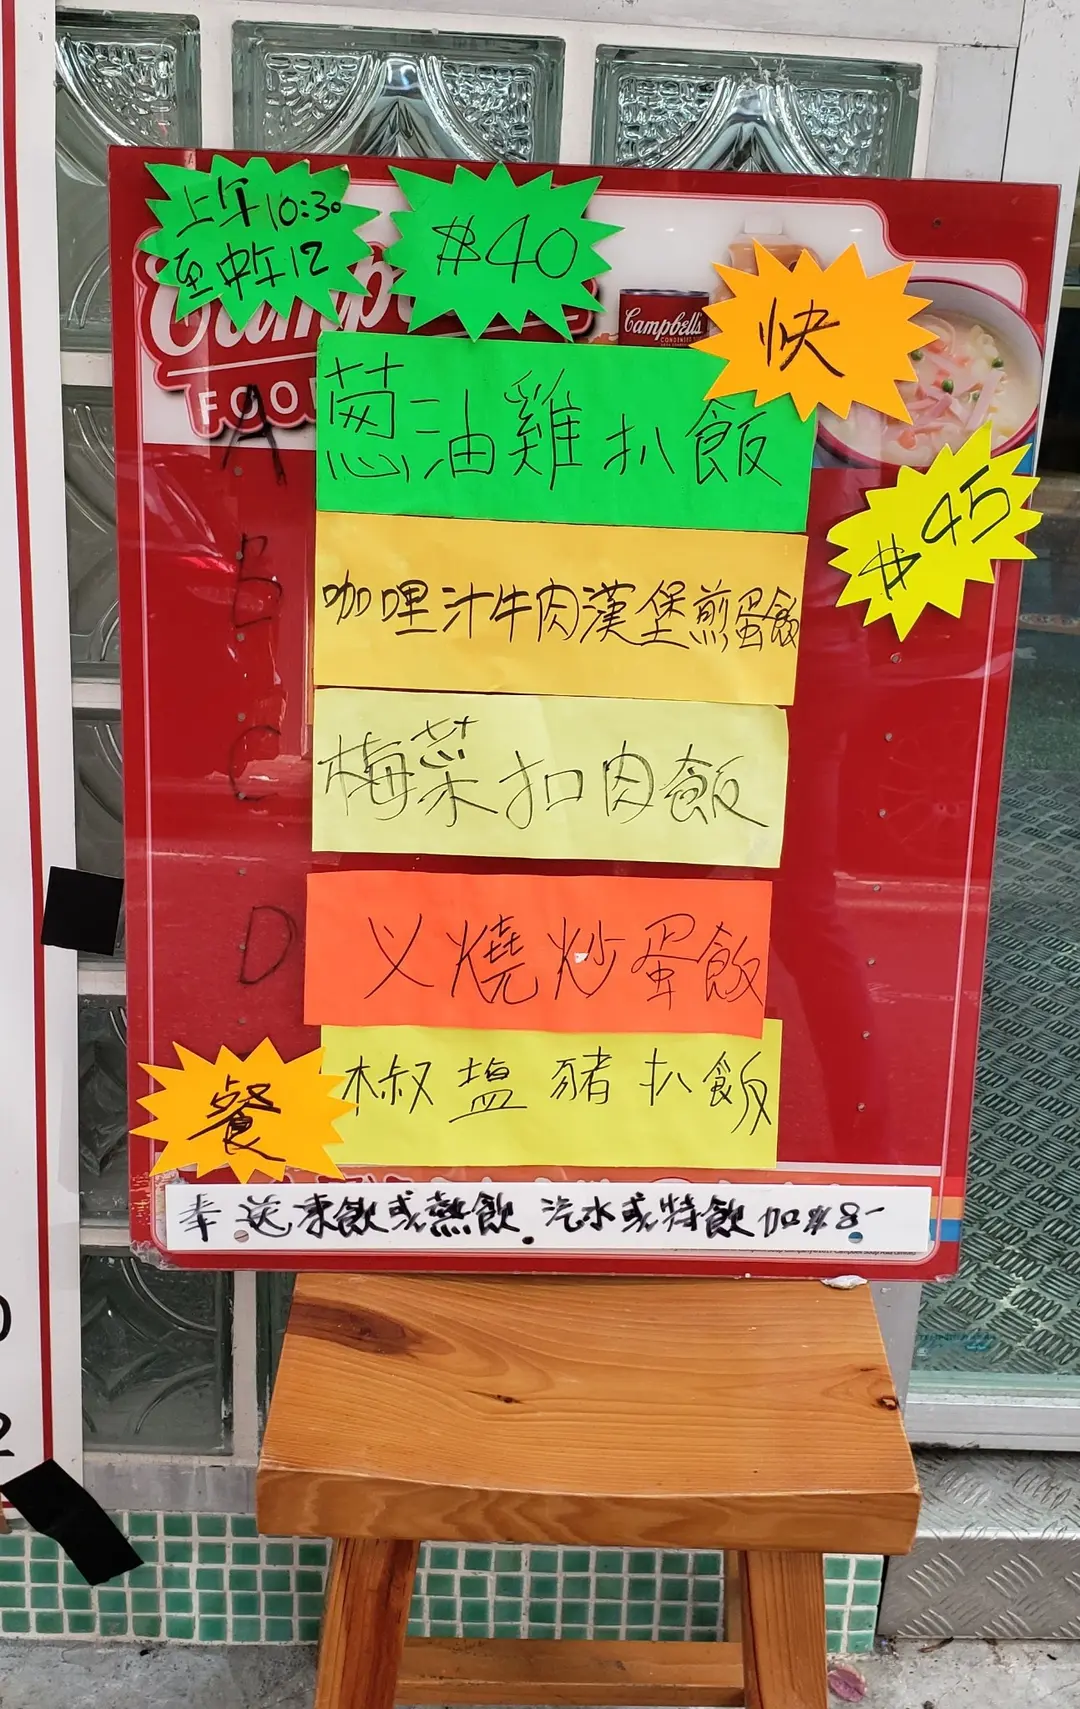 上午10:30
至中午12
$40
Campbell's
CONDENSED
快
FOO
A
蔥油雞扒飯
$45
B
咖哩汁牛肉漢堡煎蛋飯
C
梅菜扣肉飯
D
叉燒炒蛋飯
餐
椒塩豬扒飯
奉送凍飲或熱飲. 汽水或特飲加$8-